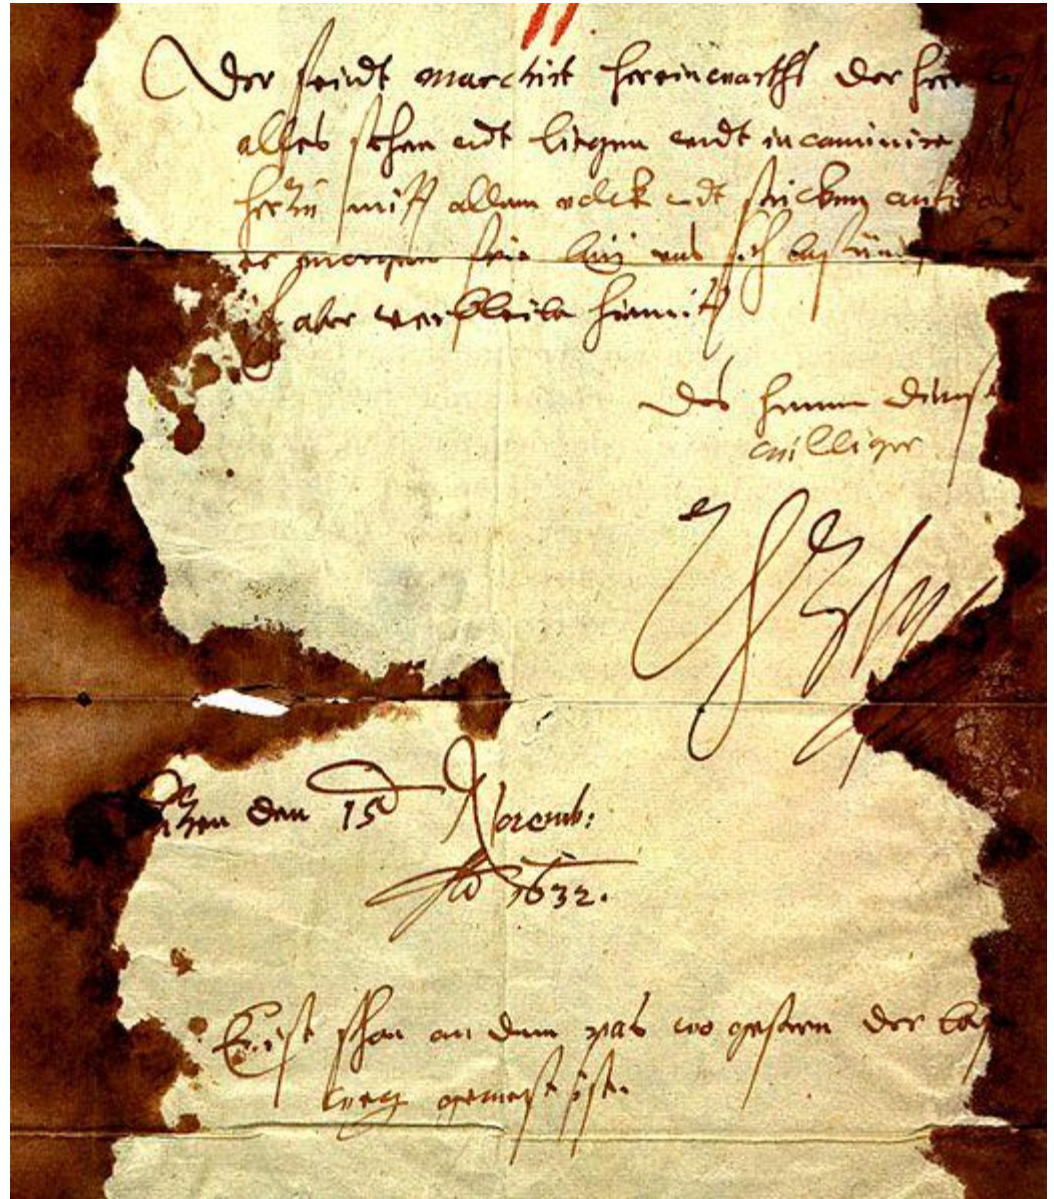 Der feindt marchirt hereinwarths der herr
alles stehen undt liegen undt incaminire
herzu mitt allem volck undt stücken
er morgen frue bey uns sich
ich aber verbleibe hiemitt
Des herren dienst
williger
Lützen den 15 Novemb:
Ao 1632.
Er ist schon an dem pas wo gestern der
weg gewest ist.